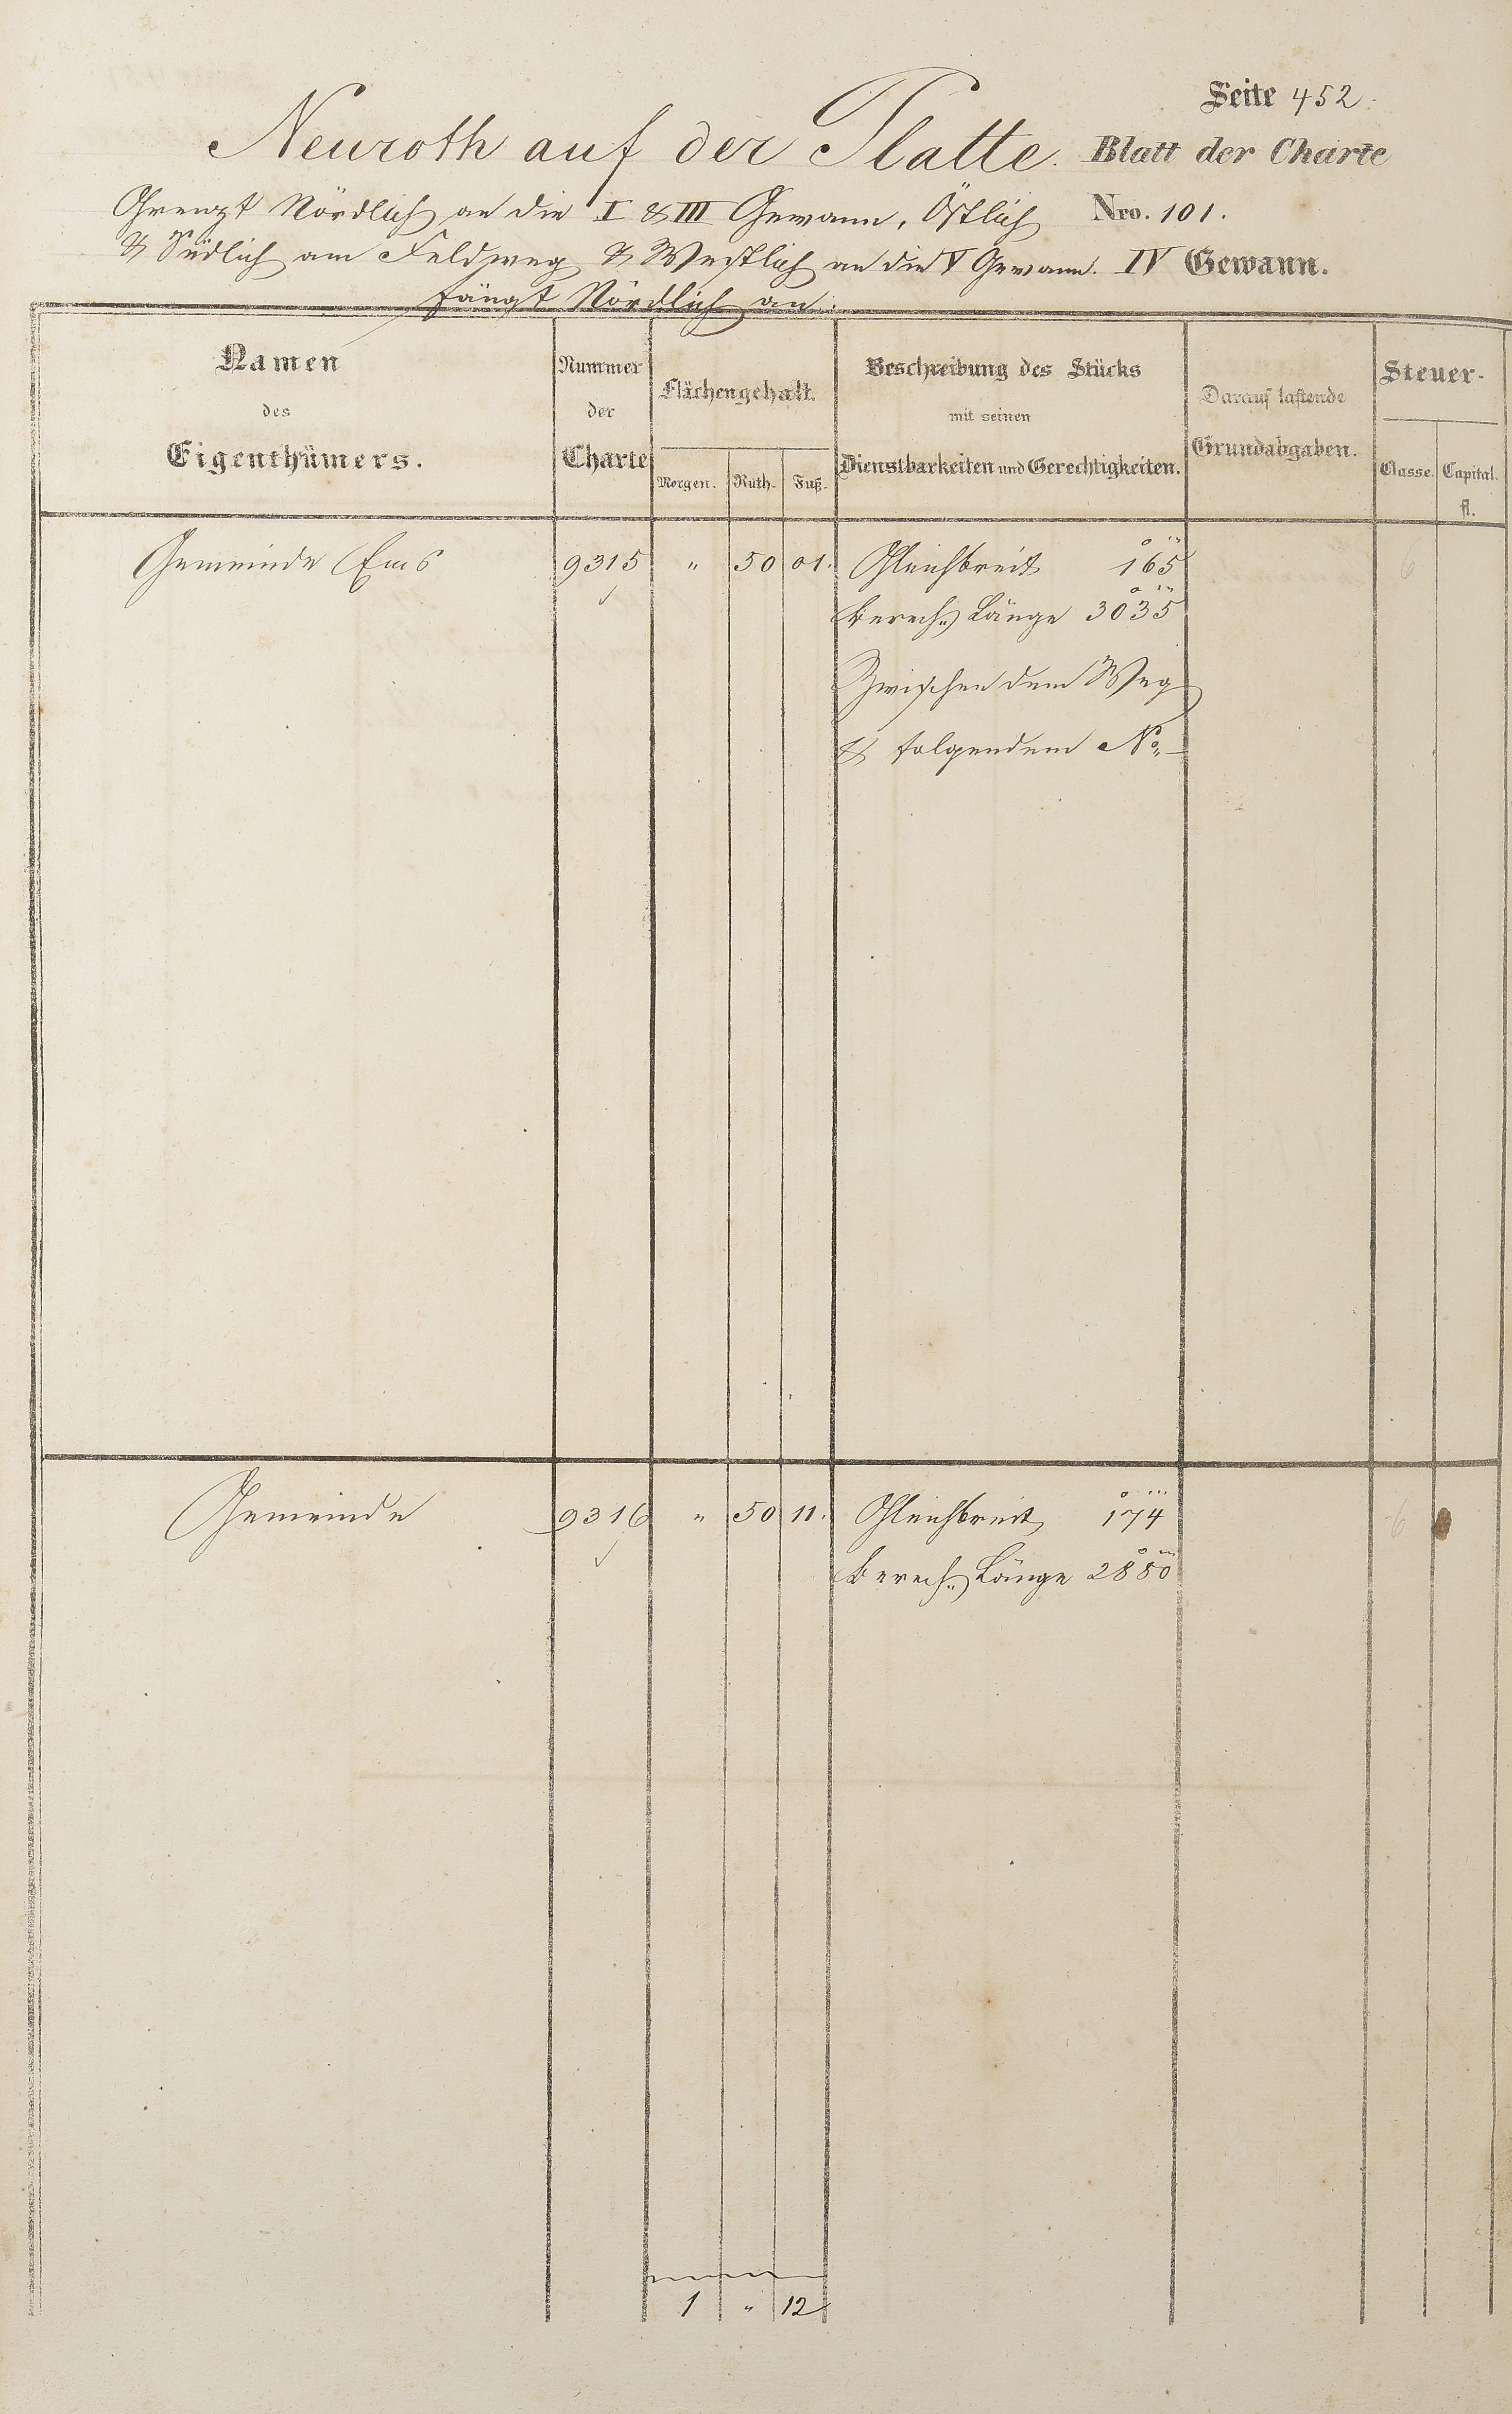 Seite 452.
Neuroth auf der Platte. Blatt der Charte
Grenzt Nördlich an die I & III Gewann, Östlich Nro. 101.
& Südlich am Feldweg & Westlich an die V Gewann. IV Gewann.
fängt Nördlich an.
Namen des Eigenthümers.
Nummer der Charte
Flächengehalt.
Morgen. Ruth. Fuß.
Beschreibung des Stücks
mit seinen
Dienstbarkeiten und Gerechtigkeiten.
Darauf lastende
Grundabgaben.
Steuer-
Classe. Capital.
fl.
Gemeinde Ems 9315 " 50 01. Gleichbreit 165
berech. Länge 3035
Zwischen dem Weg
& folgendem No.
6
Gemeinde 9316 " 50 11. Gleichbreit 174 6
berech. Länge 2880
1 " 12